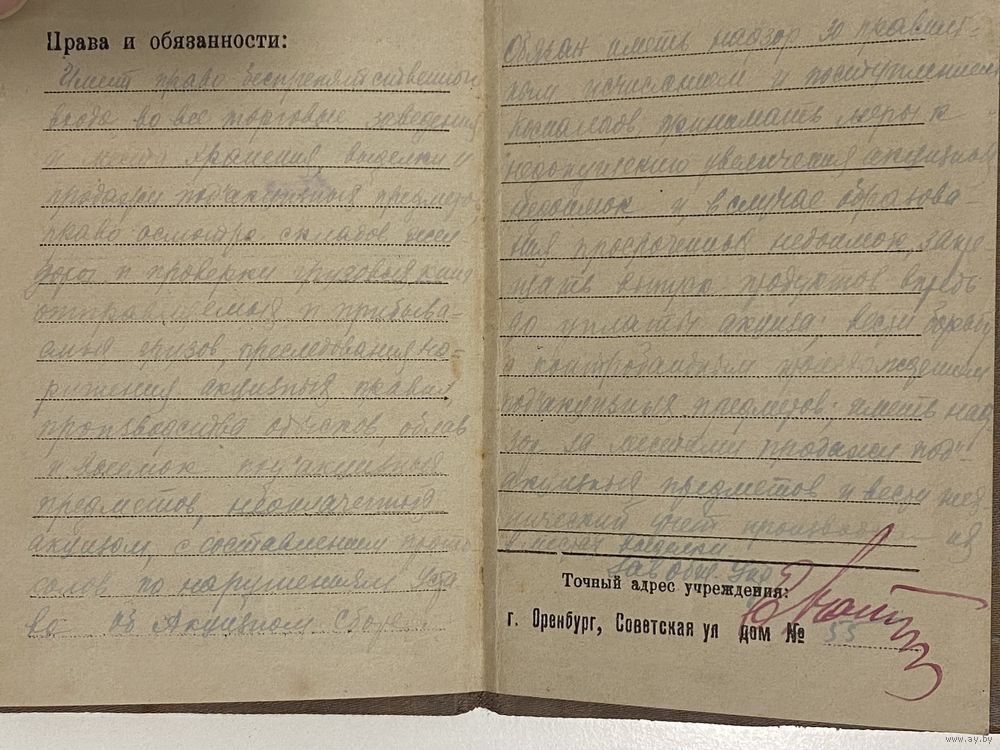 Права и обязанности:
Имеет право беспрепятственного
входа во все торговые заведения
и места хранения выделки и
продажи подакцизных предметов
право осмотра складов жел-
дорог и проверки грузовых книг
отправляемых и прибыва-
емых грузов, преследования на-
рушения акцизных правил
производства обысков, облав
и выемок подакцизных
предметов, неоплаченных
акцизом, с составлением прото
колов по нарушениям Уста
ва об Акцизном Сборе
Обязан иметь надзор за правиль-
ным исчислением и поступлением
принимать меры к
недопущению увеличения акцизных
недоимок и в случае образова-
ния просроченных недоимок,
продуктов впредь
до уплаты акциза; вести борьбу
с контрабандным
подакцизных предметов; иметь над
зор за местами продажи под
акцизных предметов и вести
учет
в местах выделки
Точный адрес учреждения:
г. Оренбург, Советская ул дом № 55
www.ay.by